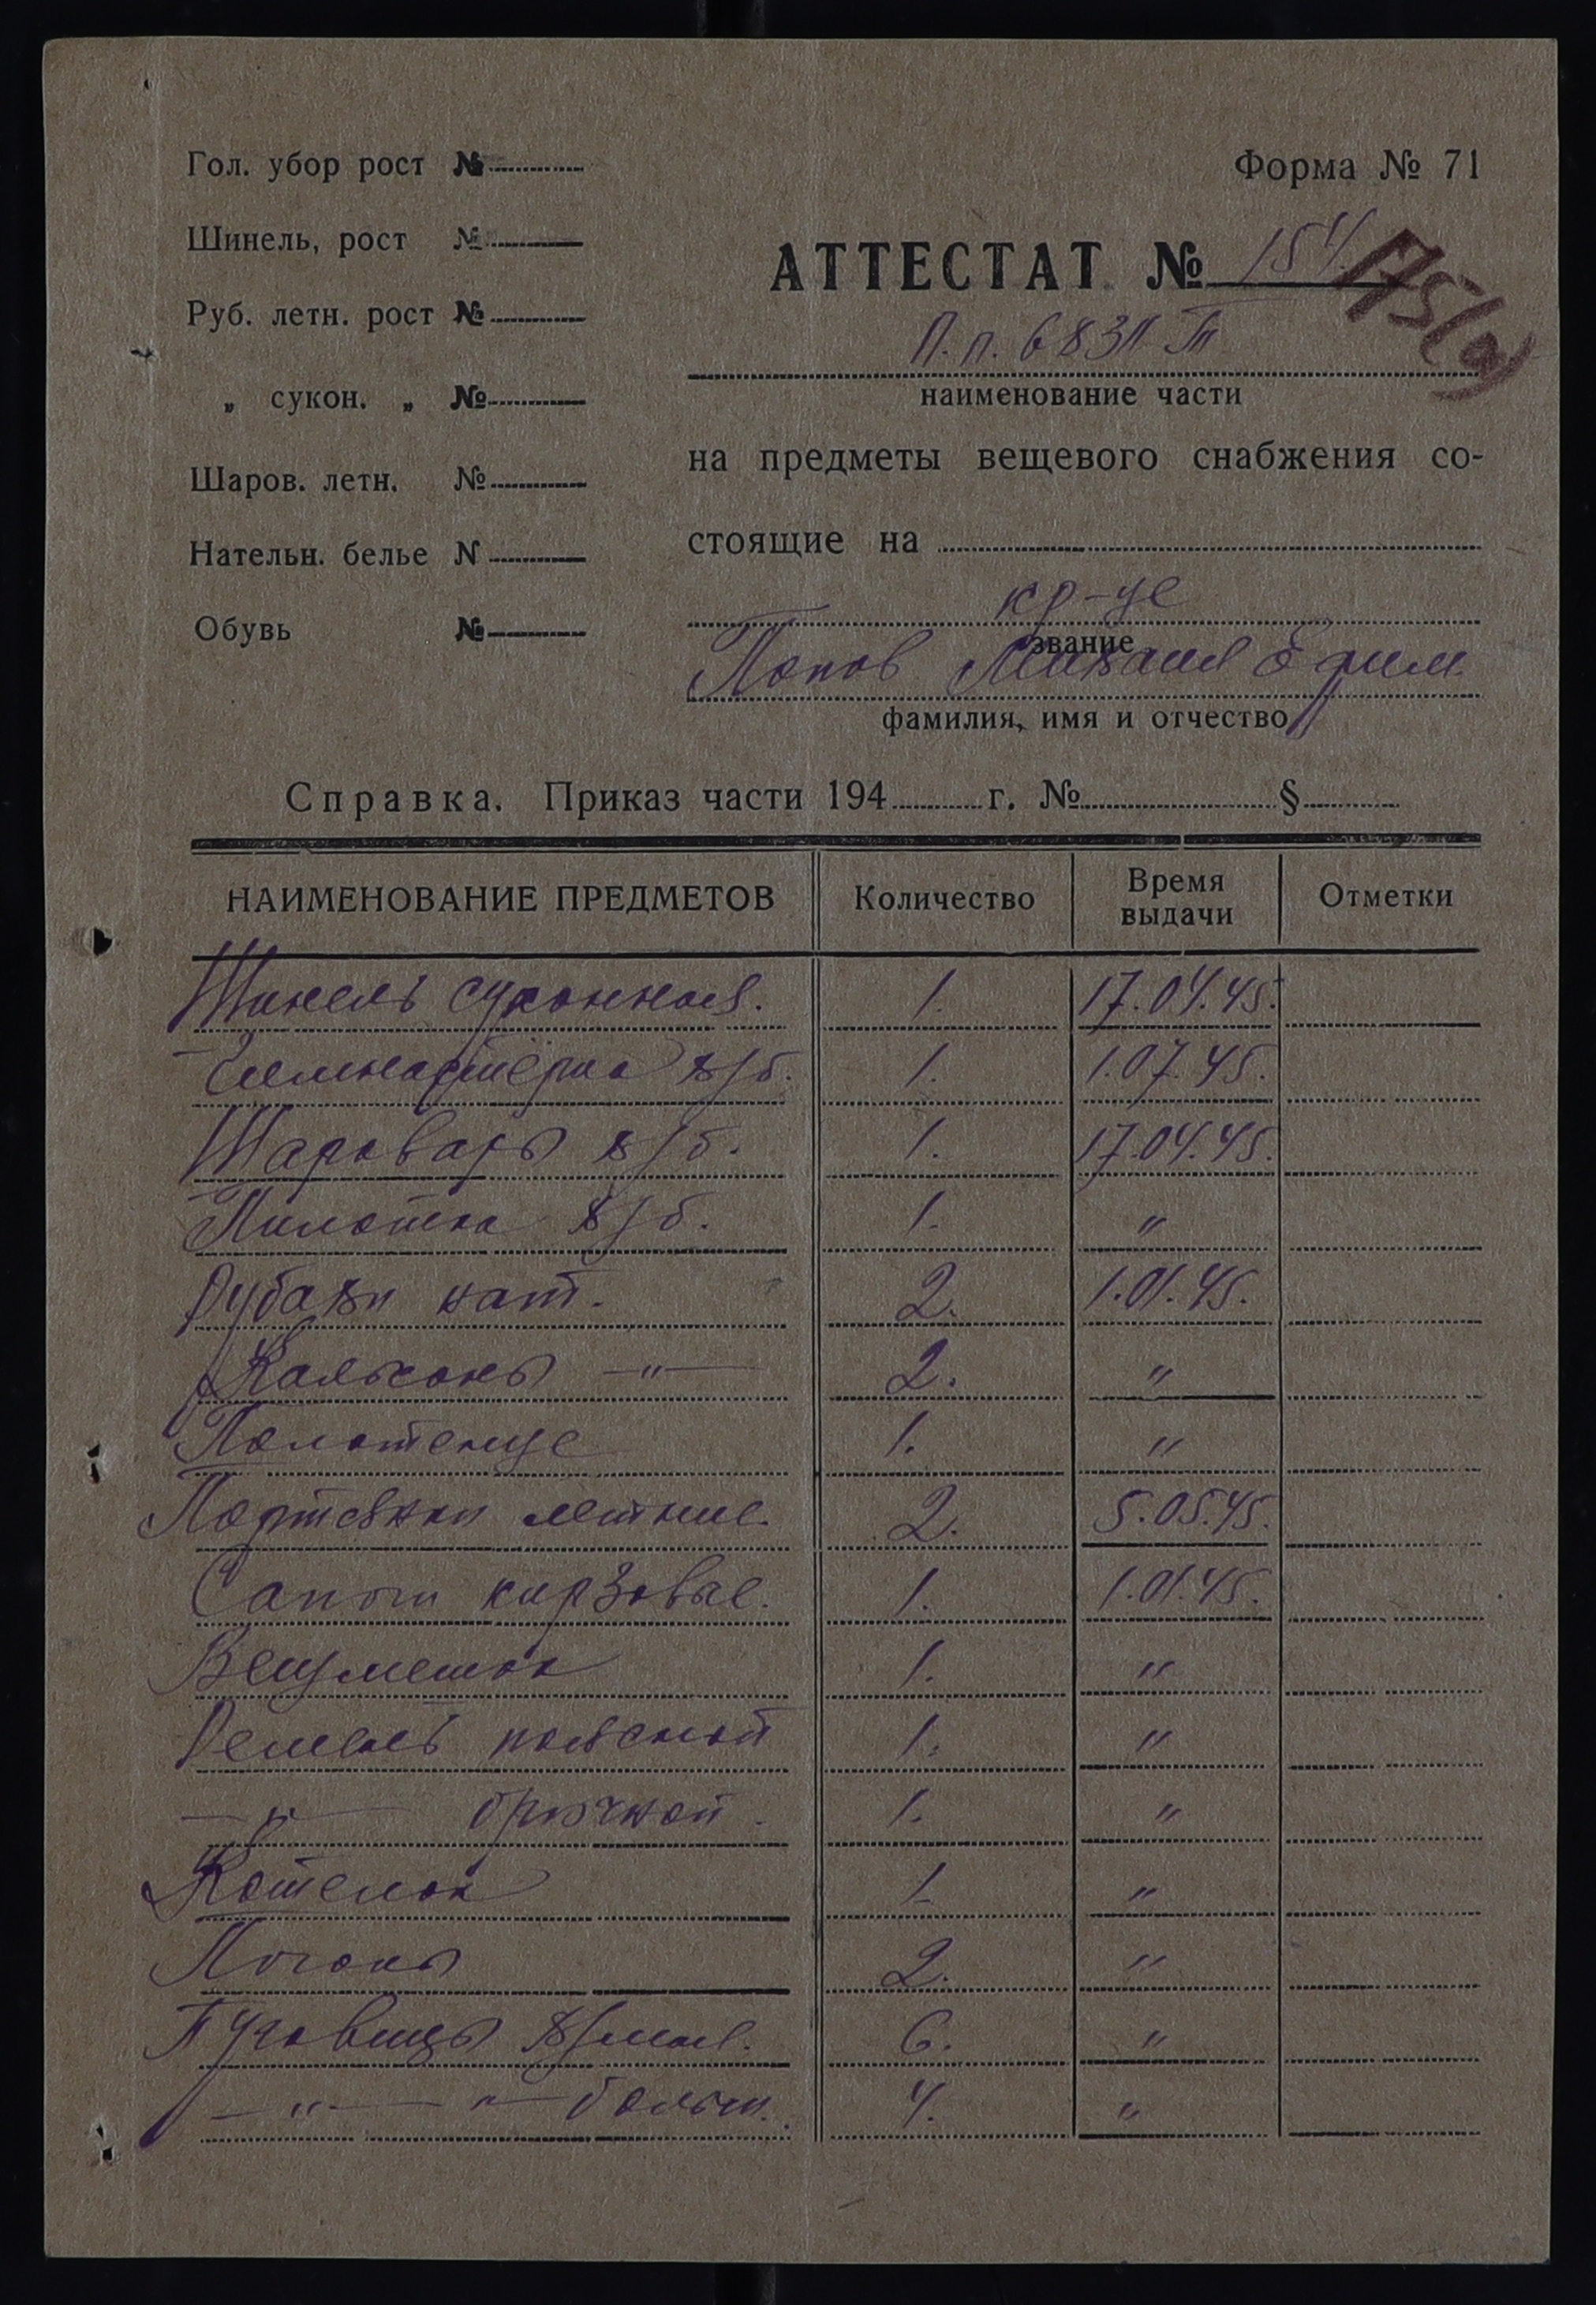 Гол. убор рост №
Шинель, рост №
Руб. летн. рост №
„ сукон. „ №
Шаров. летн. №
Нательн. белье N
Обувь №
Форма № 71
АТТЕСТАТ № 154.
175(а)
П.п. 6831
наименование части
на предметы вещевого снабжения со-
стоящие на
кр-це
звание
Попов Михаил Ефим.
фамилия, имя и отчество
Справка. Приказ части 194 г. № §
НАИМЕНОВАНИЕ ПРЕДМЕТОВ Количество Время выдачи Отметки
Шинель суконная. 1. 17.04.45.
Гимнастёрка х/б. 1. 1.07.45.
Шаровары х/б. 1. 17.04.45.
Пилотка х/б. 1. "
Рубахи нат. 2. 1.01.45.
Кальсоны —"— 2. "
Полотенце 1. "
Портянки летние. 2. 5.05.45.
Сапоги кирзовые. 1. 1.01.45.
Вещмешок 1. "
Ремень поясной 1. "
—"— брючной. 1. "
Котелок 1. "
Погоны 2. "
Пуговицы мал. 6. "
—"— " — больш. 4. "